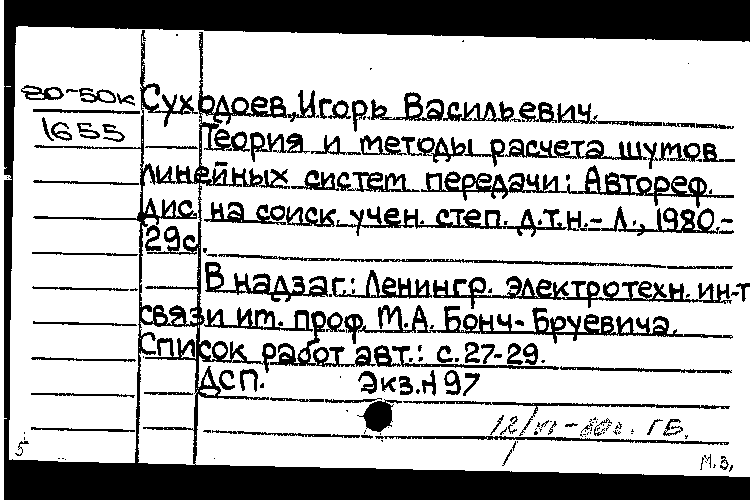 80-50к Суходоев, Игорь Васильевич.
1655 Теория и методы расчета шумов
линейных систем передачи: Автореф.
дис. на соиск. учен. степ. д.т.н.- Л., 1980.-
29с.
В надзаг.: Ленингр. электротехн. ин-т
связи им. проф. М.А. Бонч-Бруевича.
Список работ авт.: с. 27-29.
ДСП. Экз.№97
12/VI-80г. ГБ.
5 М.З,